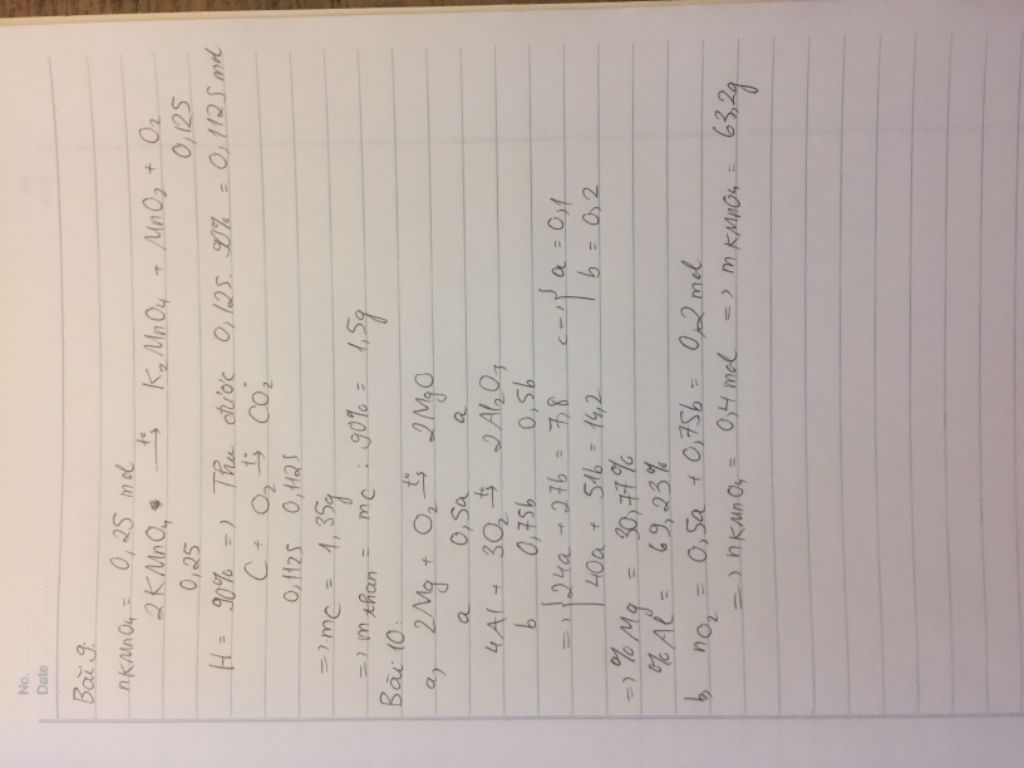 No.
Date
Bài 9:
nKMnO4 = 0,25 mol
2KMnO4 t°→ K2MnO4 + MnO2 + O2
0,25 0,125
H = 90% => Thu được 0,125. 90% = 0,1125 mol
C + O2 t°→ CO2
0,1125 0,1125
=> mC = 1,35g
=> m than = mC : 90% = 1,5g
Bài 10:
a, 2Mg + O2 t°→ 2MgO
a 0,5a a
4Al + 3O2 t°→ 2Al2O3
b 0,75b 0,5b
=> { 24a + 27b = 7,8 <=> { a = 0,1
40a + 51b = 14,2 b = 0,2
=> % Mg = 30,77%
% Al = 69,23%
b nO2 = 0,5a + 0,75b = 0,2 mol
=> nKMnO4 = 0,4 mol => mKMnO4 = 63,2g